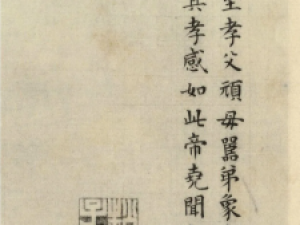 至孝父頑母嚚弟象
其孝感如此帝堯聞